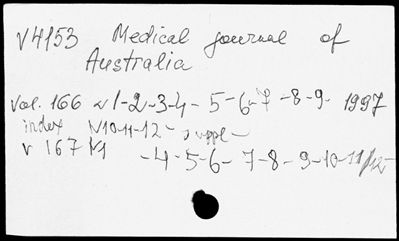 V4153 Medical journal of
Australia
Vol. 166 N1-2-3-4- 5-6-7 -8-9- 1997
index N10-11-12- suppl-
v 167 N1 -4-5-6- 7-8-9-10-11/12-